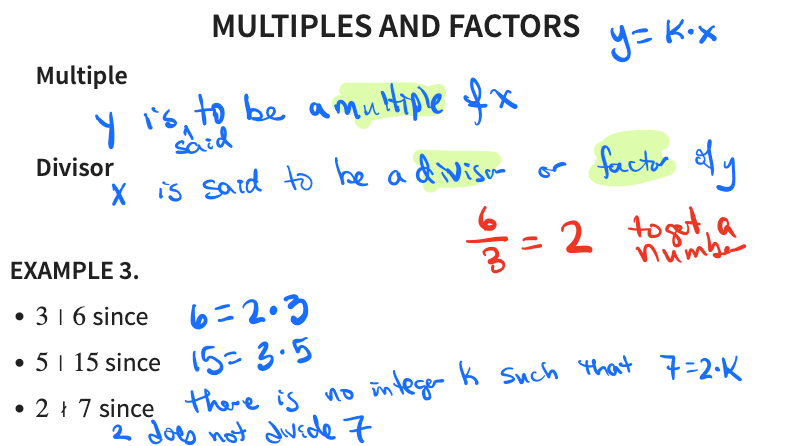 MULTIPLES AND FACTORS
y = K·x
Multiple
y is said to be a multiple of x
Divisor
x is said to be a divisor or factor of y
6/3 = 2 to get a number
EXAMPLE 3.
• 3 ∣ 6 since 6 = 2·3
• 5 ∣ 15 since 15 = 3·5
• 2 ∤ 7 since there is no integer k such that 7 = 2·K
2 does not divide 7